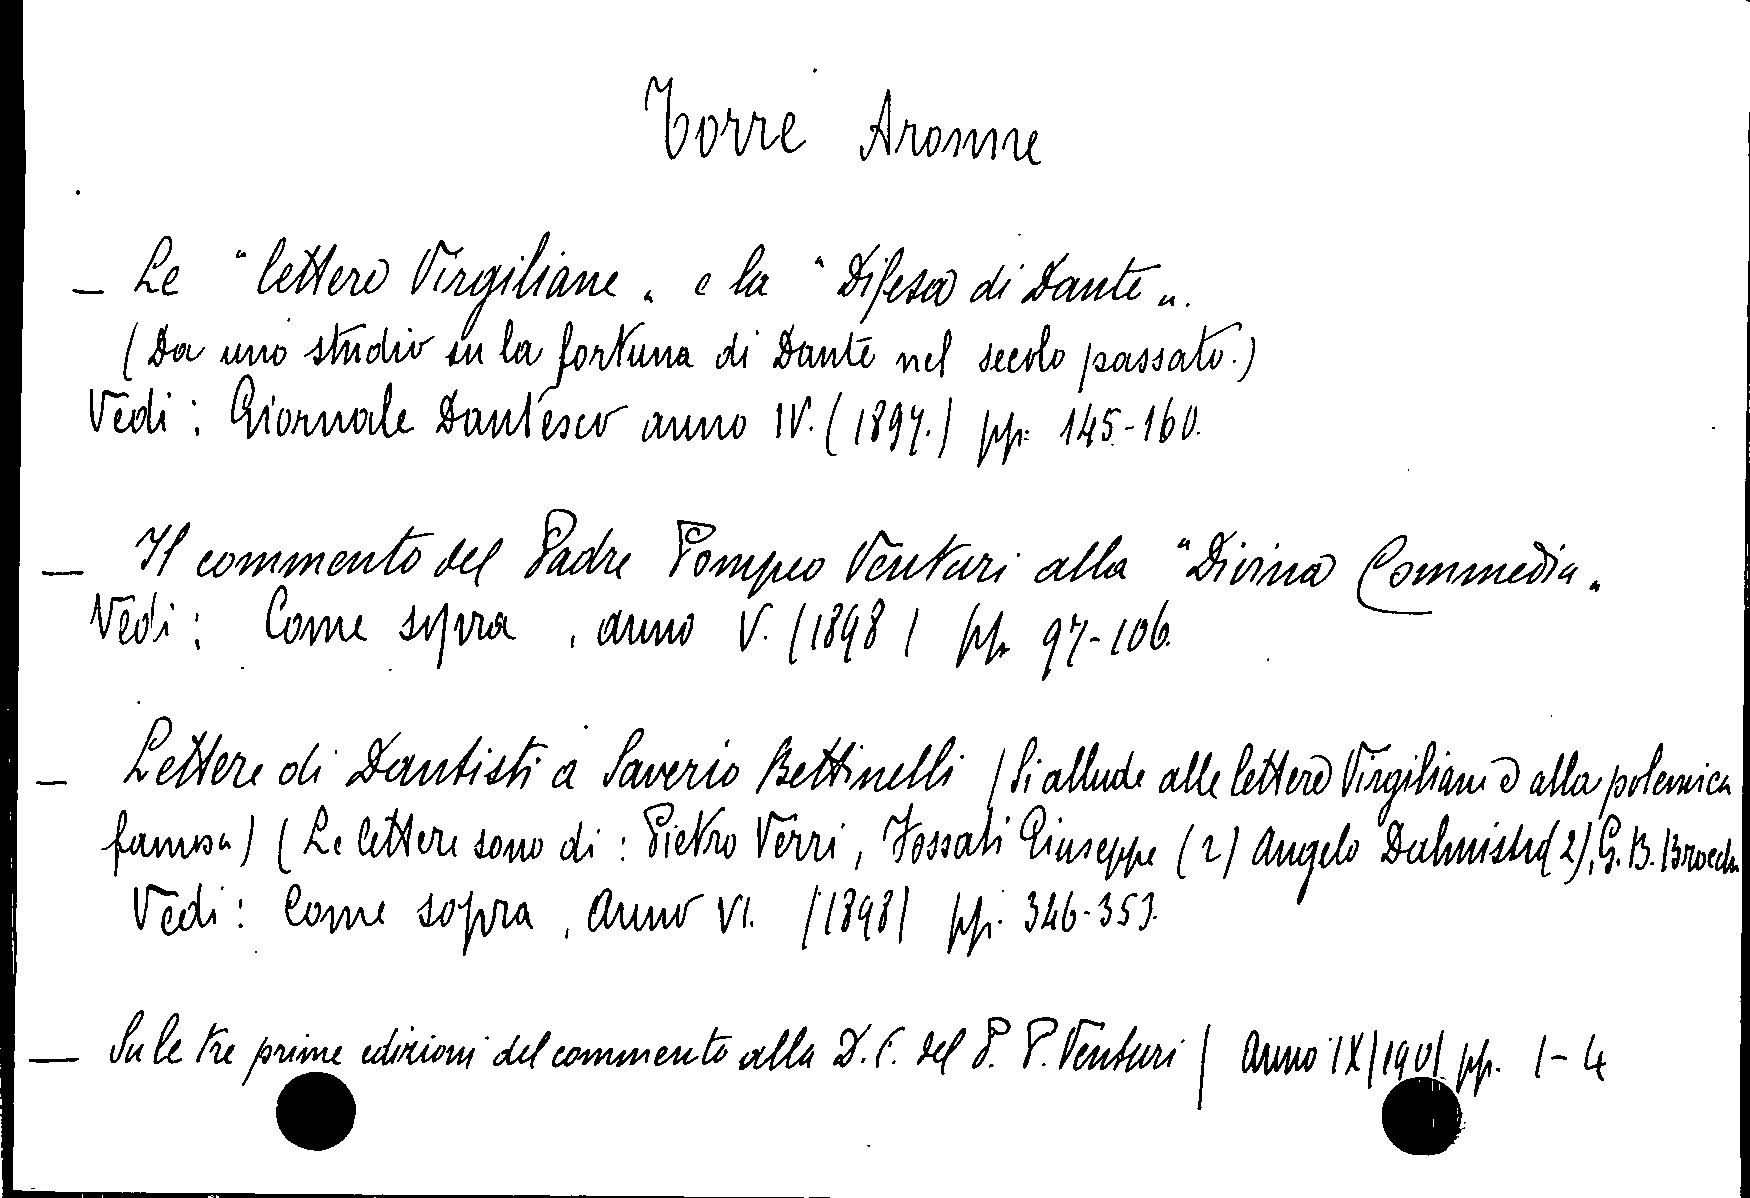 Torre Aronne
— Le "lettere Virgiliane" e la "Difesa di Dante".
(Da uno studio su la fortuna di Dante nel secolo passato.)
Vedi: Giornale Dantesco anno IV. (1897.) pp. 145-160.
— Il commento del Padre Pompeo Venturi alla "Divina Commedia"
Vedi: Come sopra, anno V. (1898) pp. 97-106.
— Lettere di Dantisti a Saverio Bettinelli (Si allude alle lettere Virgiliane e alla polemica
famosa) (Le lettere sono di: Pietro Verri, Fossati Giuseppe (2) Angelo Dalmistro (2), G. B. Brocchi
Vedi: Come sopra, Anno VI. (1898) pp. 346-353.
— Su le tre prime edizioni del commento alla D. C. del P. P. Venturi / Anno IX (1901 pp. 1-4